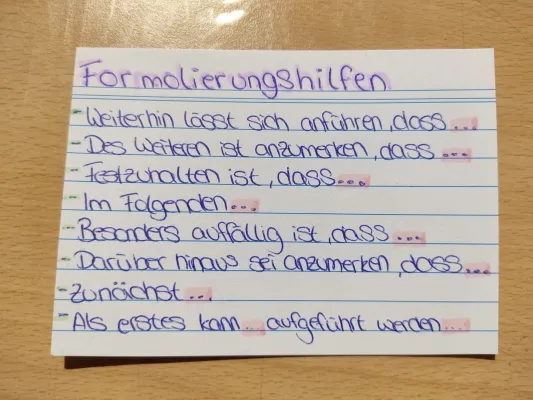 Formolierungshilfen
- Weiterhin lässt sich anführen, dass ...
- Des Weiteren ist anzumerken, dass ...
- Festzuhalten ist, dass ...
- Im Folgenden ...
- Besonders auffällig ist, dass ...
- Darüber hinaus sei anzumerken, dass ...
- Zunächst ...
- Als erstes kann ... aufgeführt werden ...